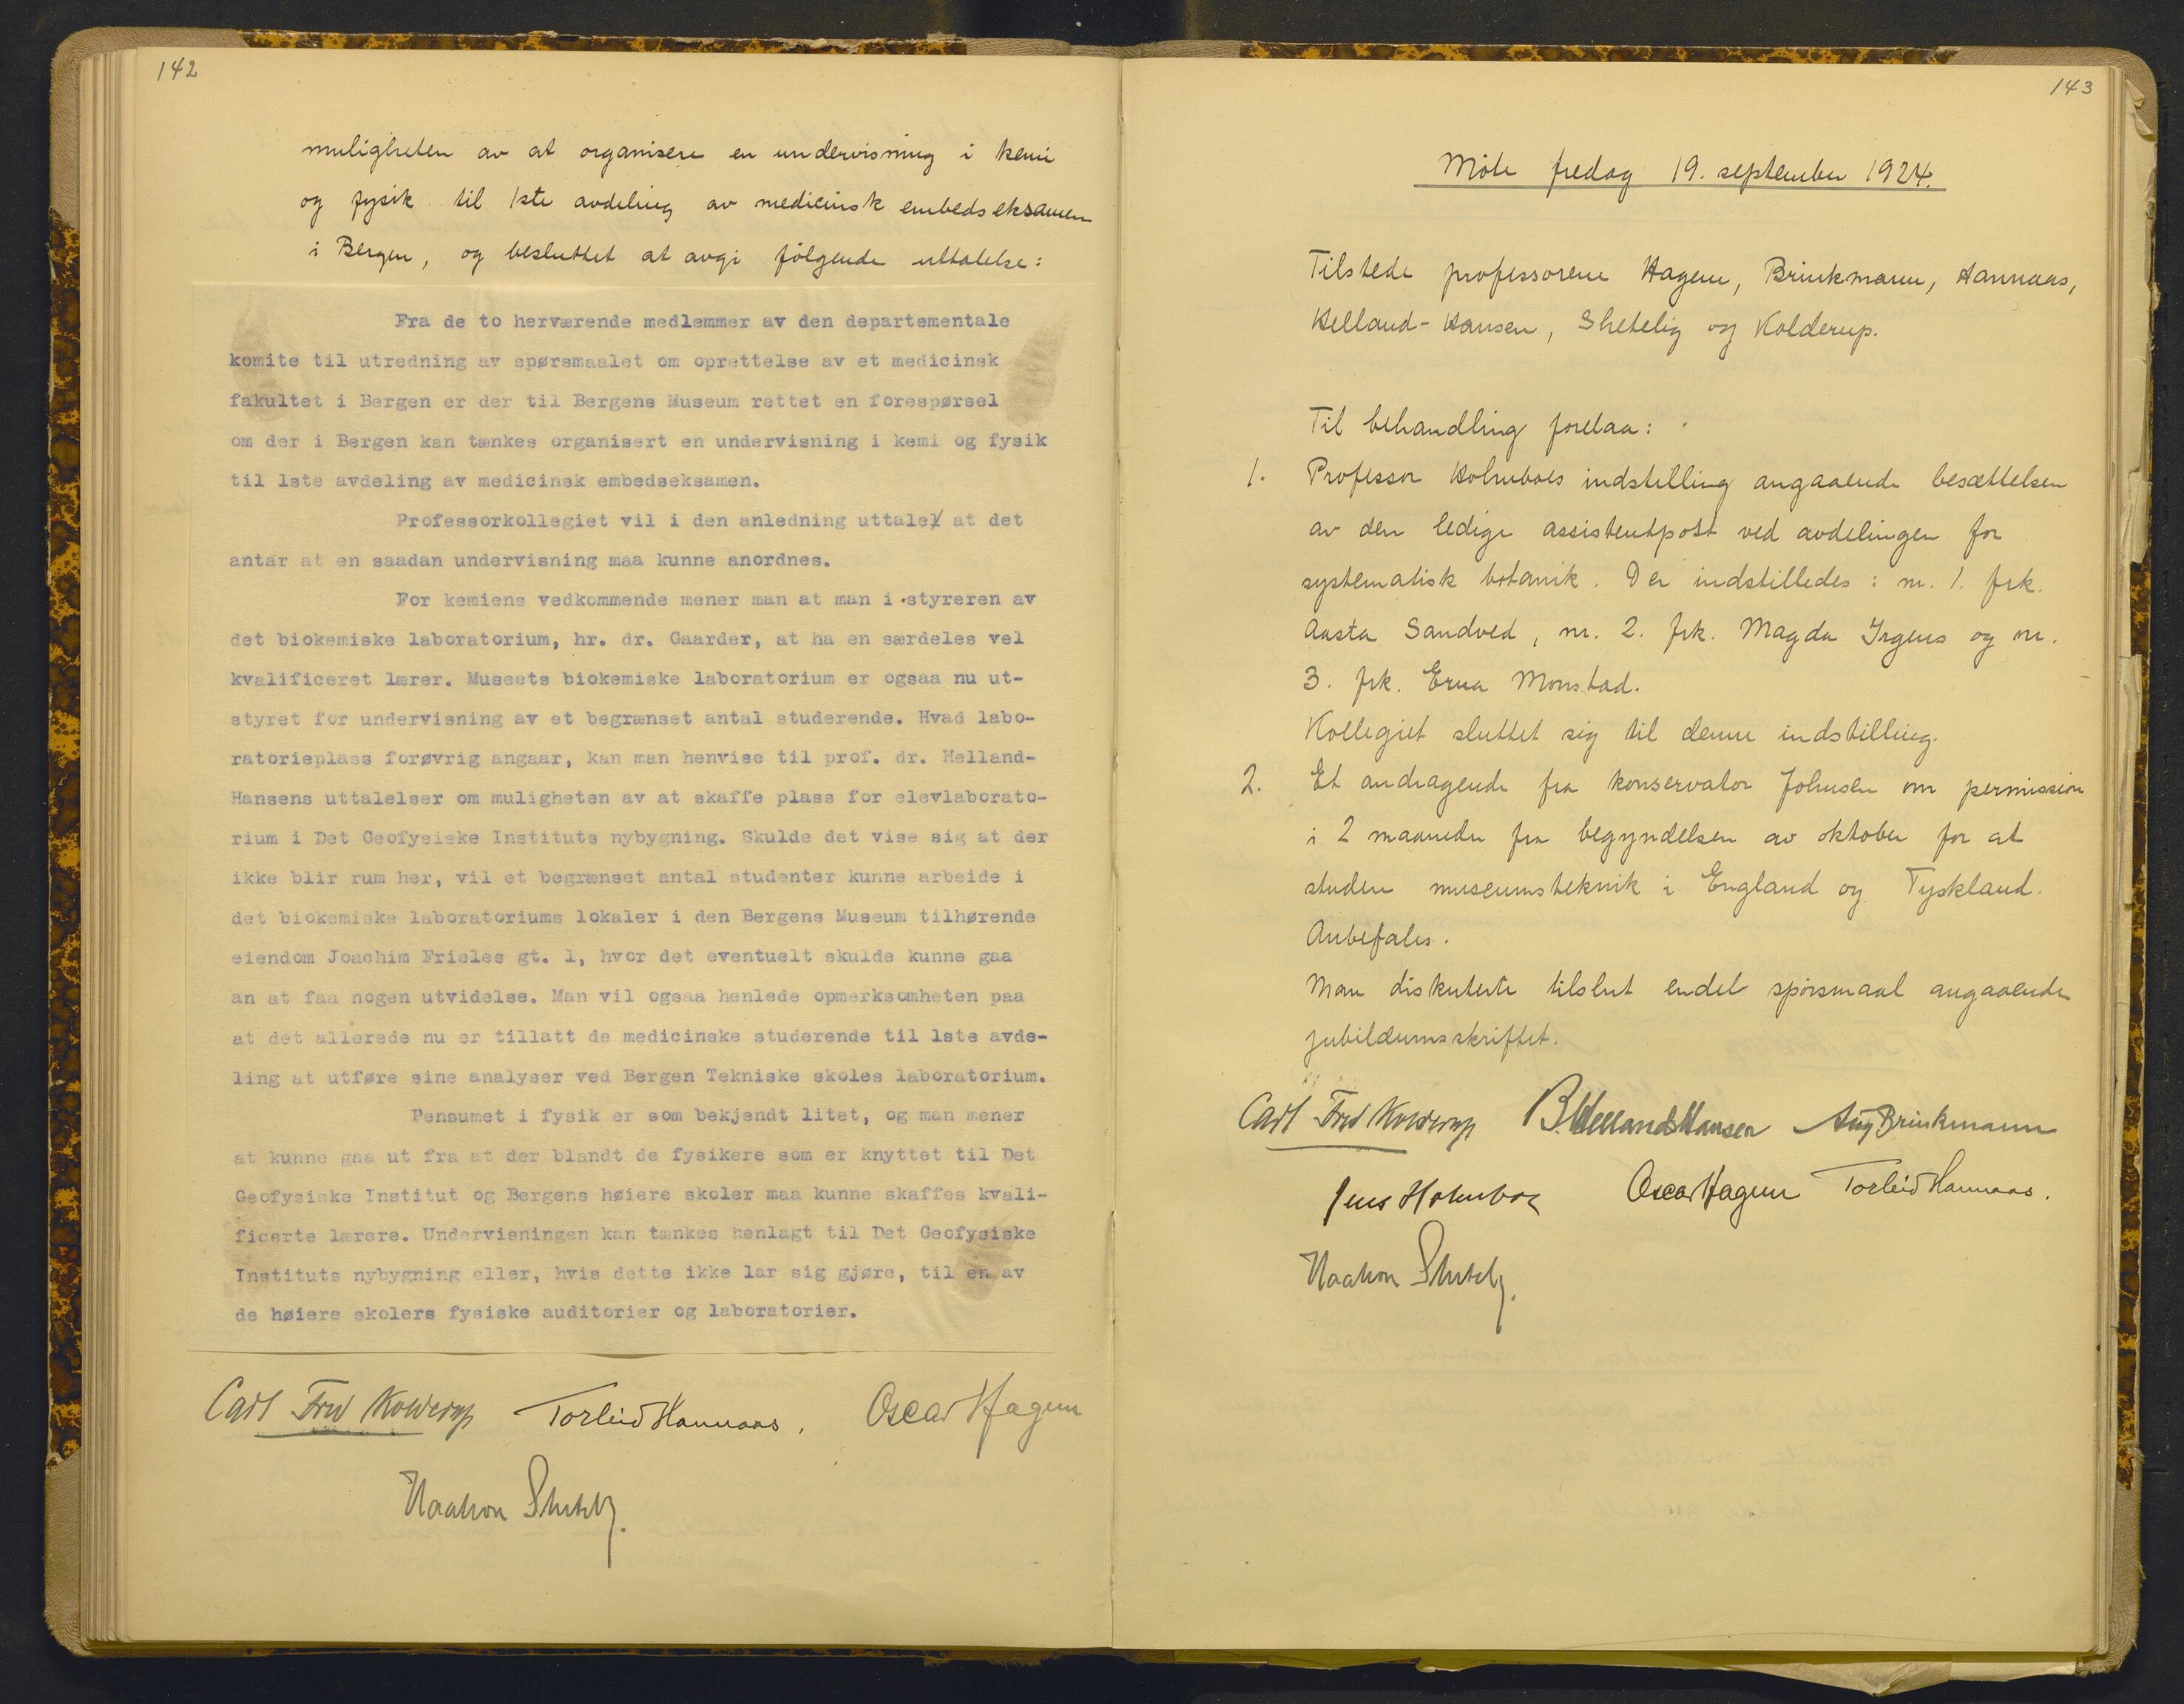 142
muligheten av at organisere en undervisning i kemi
og fysik til 1ste avdeling av medicinsk embedseksamen
i Bergen, og besluttet at avgi følgende uttalelse:
Fra de to herværende medlemmer av den departementale
komite til utredning av spørsmaalet om oprettelse av et medicinsk
fakultet i Bergen er der til Bergens Museum rettet en forespørsel
om der i Bergen kan tænkes organisert en undervisning i kemi og fysik
til 1ste avdeling av medicinsk embedseksamen.
Professorkollegiet vil i den anledning uttale at det
antar at en saadan undervisning maa kunne anordnes.
For kemiens vedkommende mener man at man i styreren av
det biokemiske laboratorium, hr. dr. Gaarder, at ha en særdeles vel
kvalificeret lærer. Museets biokemiske laboratorium er ogsaa nu ut-
styret for undervisning av et begrænset antal studerende. Hvad labo-
ratorieplass forøvrig angaar, kan man henvise til prof. dr. Helland-
Hansens uttalelser om muligheten av at skaffe plass for elevlaborato-
rium i Det Geofysiske Instituts nybygning. Skulde det vise sig at der
ikke blir rum her, vil et begrænset antal studenter kunne arbeide i
det biokemiske laboratoriums lokaler i den Bergens Museum tilhørende
eiendom Joachim Frieles gt. 1, hvor det eventuelt skulde kunne gaa
an at faa nogen utvidelse. Man vil ogsaa henlede opmerksomheten paa
at det allerede nu er tillatt de medicinske studerende til 1ste avde-
ling at utføre sine analyser ved Bergen Tekniske skoles laboratorium.
Pensumet i fysik er som bekjendt litet, og man mener
at kunne gaa ut fra at der blandt de fysikere som er knyttet til Det
Geofysiske Institut og Bergens høiere skoler maa kunne skaffes kvali-
ficerte lærere. Undervisningen kan tænkes henlagt til Det Geofysiske
Instituts nybygning eller, hvis dette ikke lar sig gjøre, til en av
de høiere skolers fysiske auditorier og laboratorier.
Carl Fred Kolderup Torleiv Hannaas. Oscar Hagem
Haakon Shetelig.
143
Møte fredag 19. september 1924.
Tilstede professorene Hagem, Brinkmann, Hannaas,
Helland-Hansen, Shetelig og Kolderup.
Til behandling forelaa:
1. Professor Holmboes indstilling angaaende besættelsen
av den ledige assistentpost ved avdelingen for
systematisk botanik. Der indstilledes: nr. 1. frk.
Aasta Sandved, nr. 2. frk. Magda Irgens og nr.
3. frk. Erna Monstad.
Kollegiet sluttet sig til denne indstilling.
2. Et andragende fra konservator Johnsen om permission
i 2 maaneder fra begyndelsen av oktober for at
studere museumsteknik i England og Tyskland.
Anbefales.
Man diskuterte tilslut endel spørsmaal angaaende
jubilæumsskriftet.
Carl Fred Kolderup B. Helland Hansen Aug Brinkmann
Jens Holmboe Oscar Hagem Torleiv Hannaas.
Haakon Shetelig.